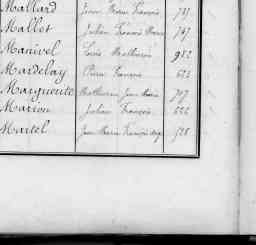 Mallard Jean Marie François 737
Mallet Julien François Marie 747
Manivel Louis Mathurin 982
Mardelay Pierre François 623
Marquente Mathurin Jean Marie 707
Marion Julien François 626
Martel Jean Marie François 528